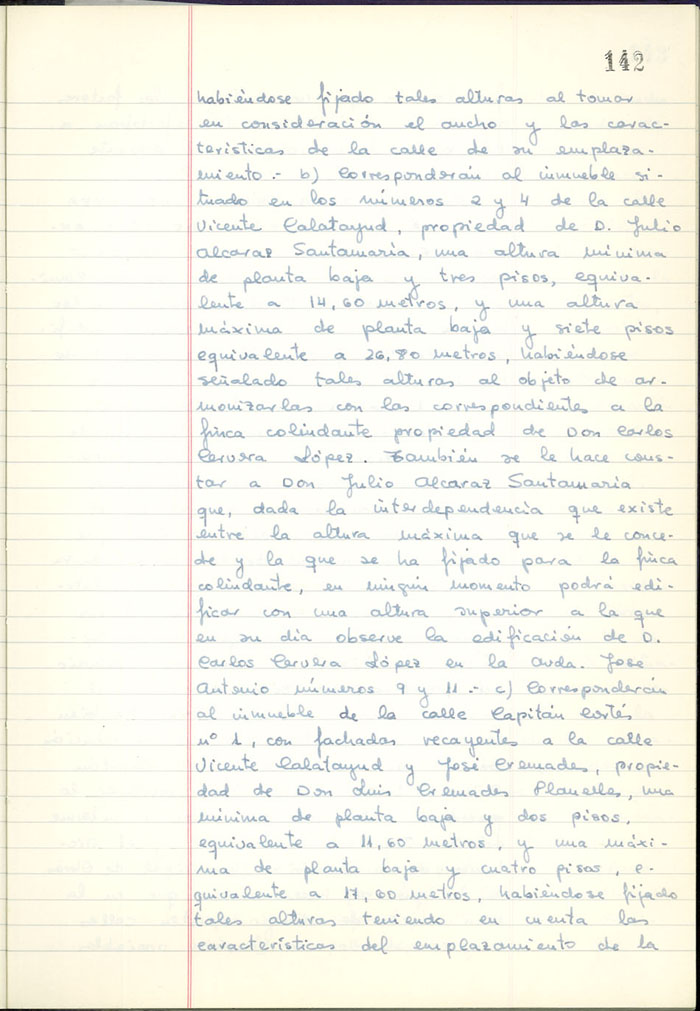 142
habiéndose fijado tales alturas al tomar
en consideración el ancho y las carac-
terísticas de la calle de su emplaza-
miento.- b) Corresponderán al inmueble si-
tuado en los números 2 y 4 de la calle
Vicente Calatayud, propiedad de D. Julio
Alcaraz Santamaría, una altura mínima
de planta baja y tres pisos, equiva-
lente a 14,60 metros, y una altura
máxima de planta baja y siete pisos
equivalente a 26,80 metros, habiéndose
señalado tales alturas al objeto de ar-
monizarlas con las correspondientes a la
finca colindante propiedad de Don Carlos
Cervera López. También se le hace cons-
tar a Don Julio Alcaraz Santamaría
que, dada la interdependencia que existe
entre la altura máxima que se le conce-
de y la que se ha fijado para la finca
colindante, en ningún momento podrá edi-
ficar con una altura superior a la que
en su día observe la edificación de D.
Carlos Cervera López en la Avda. Jose
Antonio números 9 y 11.- c) Corresponderán
al inmueble de la calle Capitán Cortés
nº 1, con fachadas recayentes a la calle
Vicente Calatayud y José Cremades, propie-
dad de Don Luis Cremades Planelles, una
mínima de planta baja y dos pisos,
equivalente a 11,60 metros, y una máxi-
ma de planta baja y cuatro pisos, e-
quivalente a 17,60 metros, habiéndose fijado
tales alturas teniendo en cuenta las
características del emplazamiento de la